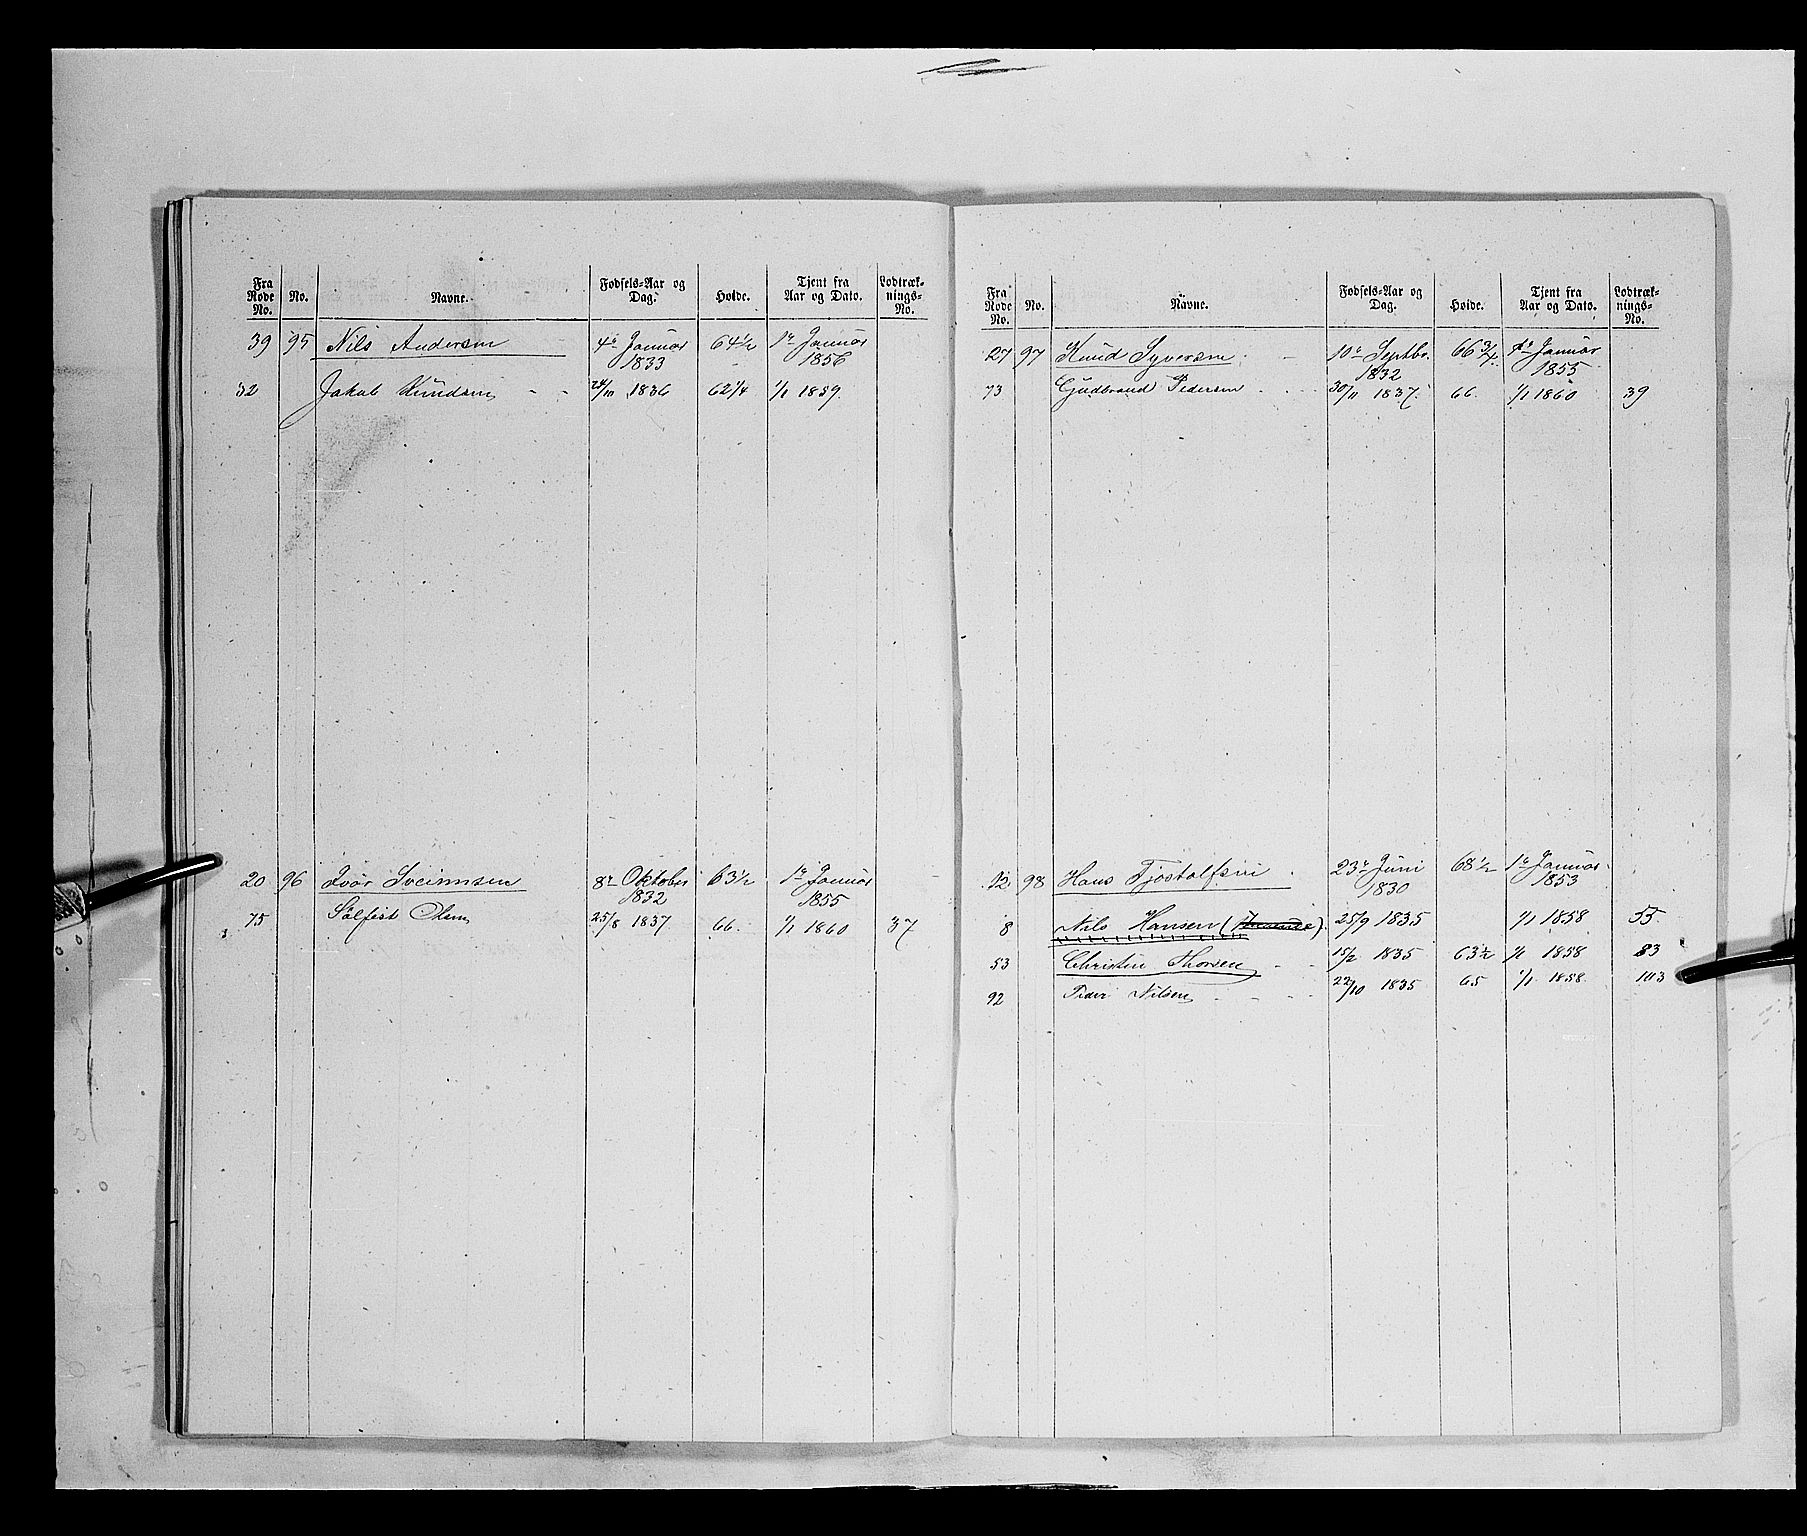 Fra Rode No. | No. | Navne. | Fødsels-Aar og Dag. | Høide. | Tjent fra Aar og Dato. | Lodtræk-nings-No.
39 95 Nils Andersen 4de Januar 1833 64 1/2 1ste Januar 1856
32 Jakob Knudsen - - 24/11 1836 62 1/4 1/1 1859.
20 96 Ivar Sveinnsen 8de Oktober 1832 63 1/2 1ste Januar 1855
75 Sølfest Olsen 25/8 1837. 66. 1/1 1860 37
Fra Rode No. | No. | Navne. | Fødsels-Aar og Dag. | Høide. | Tjent fra Aar og Dato. | Lodtræk-nings-No.
27 97 Knud Syversen - 10de Septbr. 1832 66 3/4. 1ste Januar 1855
73 Gudbrand Pedersen 30/11 1837. 66. 1/1 1860 39
12 98 Hans Tjostolfsen 23de Juni 1830 68 1/2 1ste Januar 1853
8 Nils Hansen ( ). 25/9 1835 1/1 1858 55
53 Christen Thorsen - - 15/2 1835 63 1/2 1/1 1858 83
92 Peder Nilsen - - - - 22/10 1835 65 1/1 1858. 103